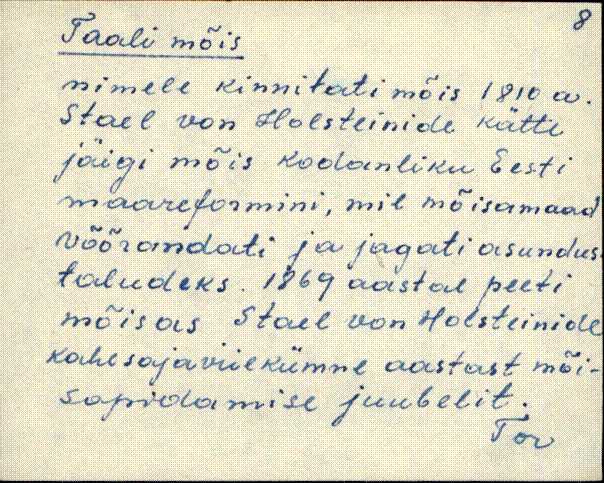 8
Taali mõis
nimele kinnitati mõis 1810 a.
Stael von Holsteinide kätte
jäigi mõis kodanliku Eesti
maareformini, mil mõisamaad
võõrandati ja jagati asundus-
taludeks. 1869 aastal peeti
mõisas Stael von Holsteinide
kahesajaviiekümne aastast mõi-
sapidamise juubelit.
Tor